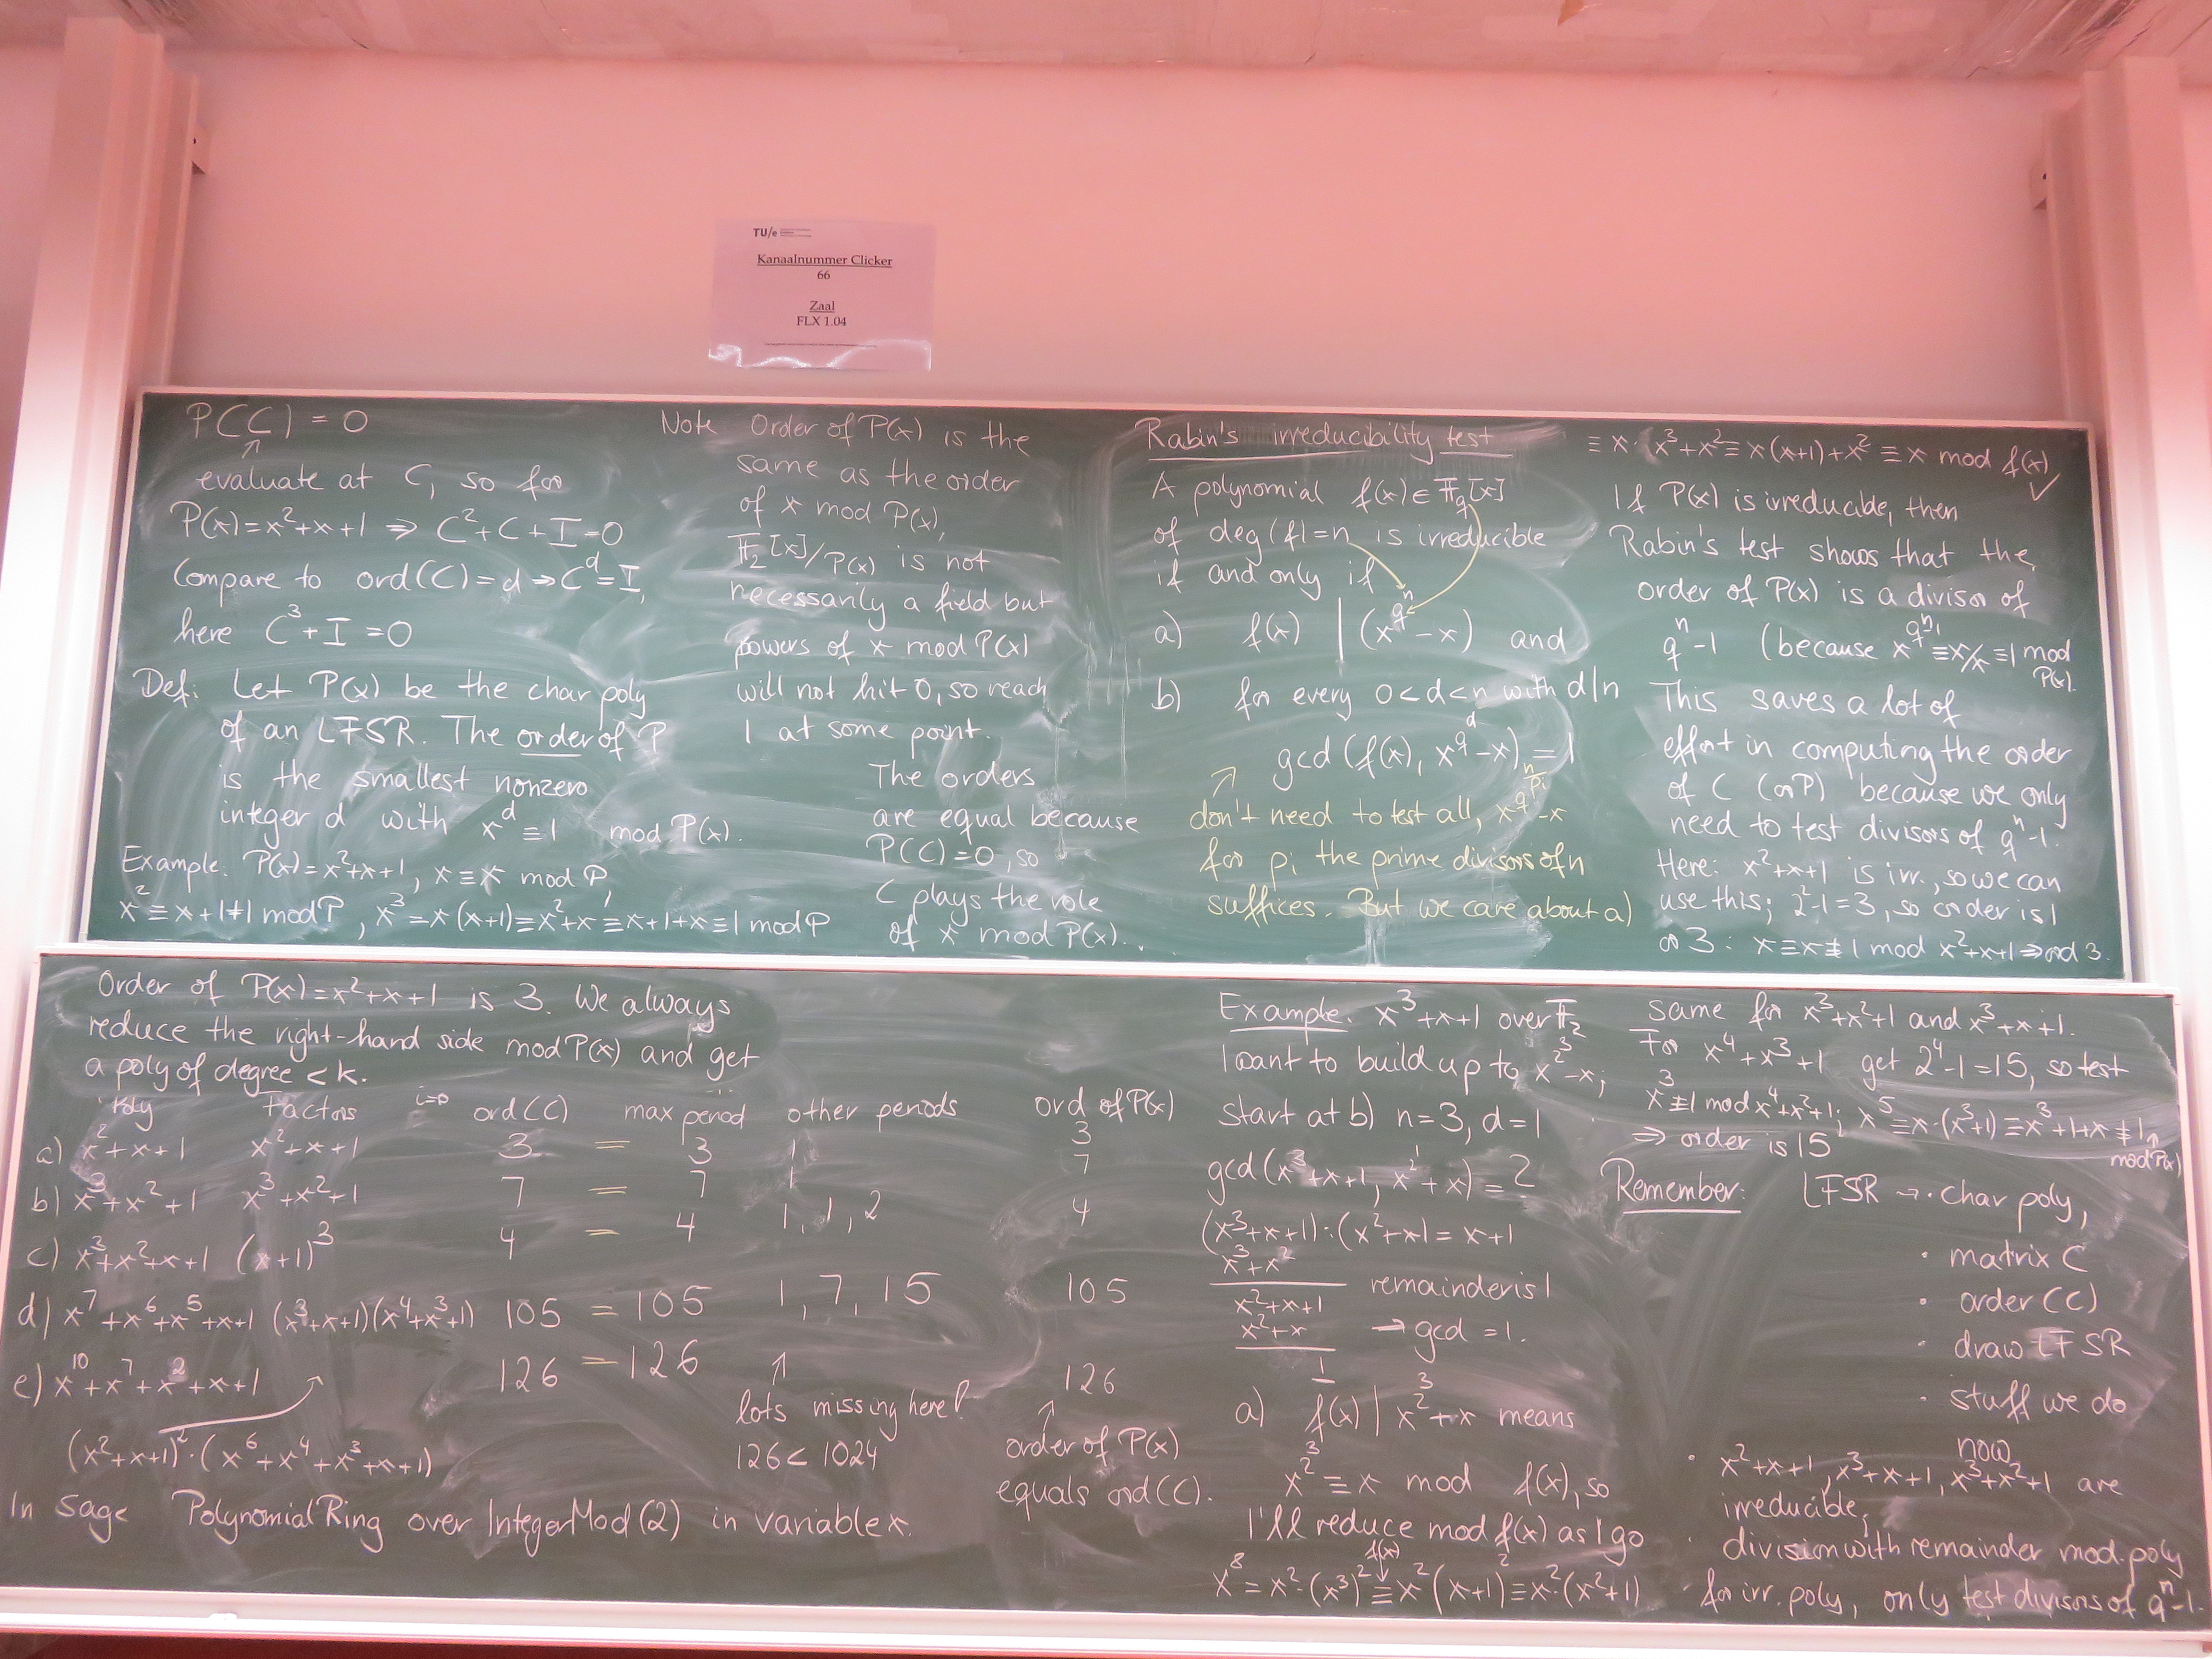 TU/e
Kanaalnummer Clicker
66
Zaal
FLX 1.04
P(C) = 0
↑
evaluate at C, so for
P(x)=x²+x+1 ⇒ C²+C+I=0
Compare to ord(C)=d → C^d=I,
here C³+I=0
Def: Let P(x) be the char poly
of an LFSR. The order of P
is the smallest nonzero
integer d with x^d ≡ 1 mod P(x).
Example. P(x)=x²+x+1, x≡x mod P,
x²≡x+1≢1 mod P, x³=x(x+1)≡x²+x≡x+1+x≡1 mod P
Note Order of P(x) is the
same as the order
of x mod P(x),
F₂[x]/P(x) is not
necessarily a field but
powers of x mod P(x)
will not hit 0, so reach
1 at some point.
The orders
are equal because
P(C)=0, so
C plays the role
of x mod P(x).
Rabin's irreducibility test
A polynomial f(x)∈F_q[x]
of deg(f)=n is irreducible
if and only if
a) f(x) | (x^{q^n}-x) and
b) for every 0<d<n with d|n
gcd(f(x), x^{q^d}-x)=1
↗ don't need to test all, x^{q^{n/p_i}}-x
for p_i the prime divisors of n
suffices. But we care about a)
≡ x·x³+x²≡x(x+1)+x²≡x mod f(x) ✓
If P(x) is irreducible, then
Rabin's test shows that the
order of P(x) is a divisor of
q^n-1 (because x^{q^n-1}≡x/x≡1 mod
P(x).
This saves a lot of
effort in computing the order
of C (or P) because we only
need to test divisors of q^n-1.
Here: x²+x+1 is irr., so we can
use this; 2²-1=3, so order is 1
or 3: x≡x≢1 mod x²+x+1⇒ord 3.
Order of P(x)=x²+x+1 is 3. We always
reduce the right-hand side mod P(x) and get
a poly of degree <k.
Poly Factors i=0 ord(C) max period other periods ord of P(x)
a) x²+x+1 x²+x+1 3 = 3 1 3
b) x³+x²+1 x³+x²+1 7 = 7 1 7
c) x³+x²+x+1 (x+1)³ 4 = 4 1,1,2 4
d) x⁷+x⁶+x⁵+x+1 (x³+x+1)(x⁴+x³+1) 105 = 105 1,7,15 105
e) x¹⁰+x⁷+x²+x+1 126 = 126 ↑ 126
(x²+x+1)²·(x⁶+x⁴+x³+x+1)
lots missing here!
126<1024
↑
order of P(x)
equals ord(C).
In Sage PolynomialRing over IntegerMod(2) in variable x.
Example. x³+x+1 over F₂
I want to build up to x^{2³}-x;
Start at b) n=3, d=1
gcd(x³+x+1, x^{2^1}+x)=2
(x³+x+1):(x²+x)=x+1
x³+x²
x²+x+1 remainder is 1
x²+x → gcd=1.
1
a) f(x) | x^{2³}+x means
x^{2³} ≡ x mod f(x), so
I'll reduce mod f(x) as I go
f(x)
↓
x⁸=x²·(x³)²≡x²(x+1)²≡x²·(x²+1)
same for x³+x²+1 and x³+x+1.
For x⁴+x³+1 get 2⁴-1=15, so test
x³≢1 mod x⁴+x³+1; x⁵≡x·(x³+1)≡x³+1+x≢1
⇒ order is 15
mod P(x)
Remember: LFSR → · char poly,
· matrix C
· order(C)
· draw LFSR
· stuff we do
now
· x²+x+1, x³+x+1, x³+x²+1 are
irreducible,
· division with remainder mod. poly
· for irr. poly, only test divisors of q^n-1.